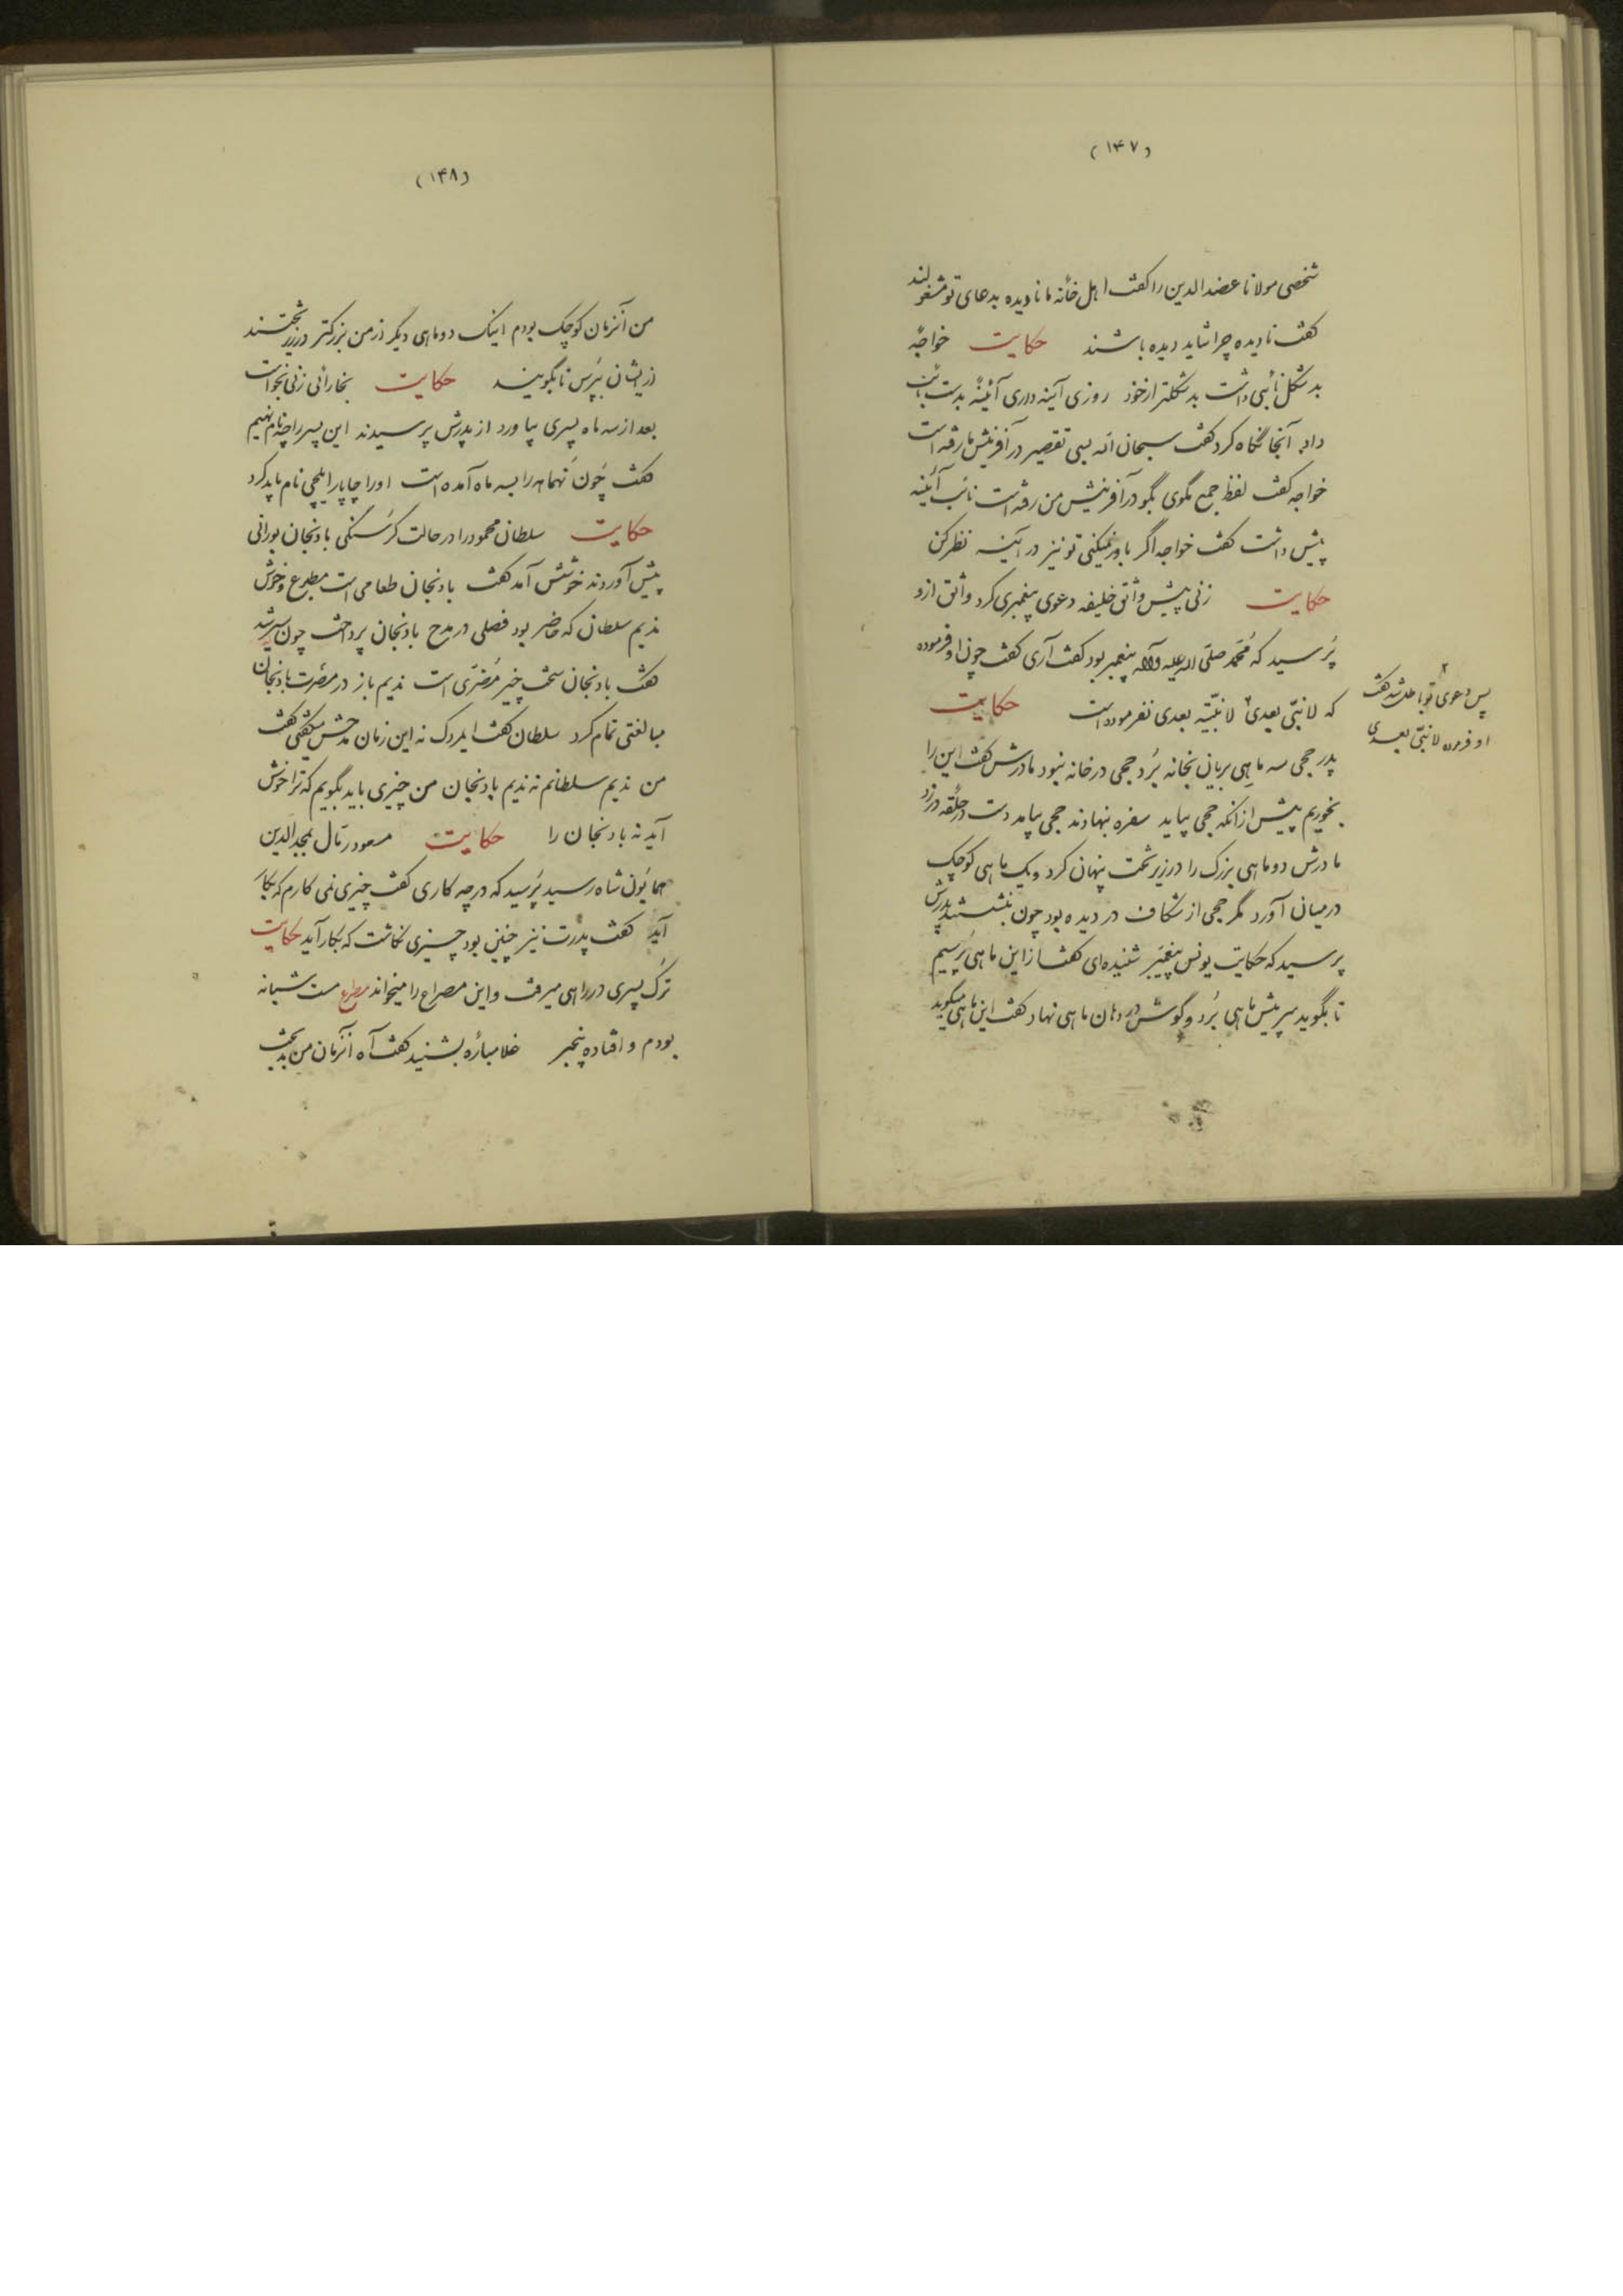 (۱۴۷)
شخصی مولانا عضدالدین را گفت اهل خانه ما نادیده بدعای تو مشغولند
گفت نادیده چرا شاید دیده باشند حکایت خواجهٔ
بد شکل نائبی داشت بد شکلتر از خود روزی آینه داری آئینهٔ بدست نائب
داد آنجا نگاه کرد گفت سبحان الله بسی تقصیر در آفرینش ما رفته است
خواجه گفت لفظ جمع مگوی بگو در آفرینش من رفته است نائب آئینه
پیش داشت گفت خواجه اگر باور نمیکنی تو نیز در آینه نظر کن
حکایت زنی پیش واثق خلیفه دعوی پیغمبری کرد واثق ازو
پُرسید که مُحَمّد صلّی الله علیه وآله پیغمبر بود گفت آری گفت چون او فرموده
که لا نبّی بعدی ۲ لا نبیّته بعدی نفرموده است حکایت
۲
پس دعوی تو باطل شد گفت
او فرموده لا نبّی بعدی
پدر جحی سه ماهی بریان بخانه بُرد جحی در خانه نبود مادرش گفت این را
بخوریم پیش از آنکه جحی بیاید سفره بنهادند جحی بیامد دست در حلقه در زد
مادرش دو ماهی بزرگ را در زیر تخت پنهان کرد و یک ماهی کوچک
در میان آورد مگر جحی از شکاف در دیده بود چون بنشستند پدرش
پرسید که حکایت یونس پیغمبر شنیده‌ای گفت از این ماهی پُرسیم
تا بگوید سر پیش ماهی بُرد و گوش در دهان ماهی نهاد گفت این ماهی میگوید
(۱۴۸)
من آنزمان کوچک بودم اینک دو ماهی دیگر از من بزرگتر در زیر تختند
ازیشان بپُرس تا بگویند حکایت بخارائی زنی بخواست
بعد از سه ماه پسری بیاورد از پدرش پرسیدند این پسر را چه نام نهیم
گفت چون نُهماهه را بسه ماه آمده است او را چاپار ایلچی نام باید کرد
حکایت سلطان محمود را در حالت گرسنگی بادنجان بورانی
پیش آوردند خوشش آمد گفت بادنجان طعامی است مطبوع و خوش
ندیم سلطان که حاضر بود فصلی در مدح بادنجان پرداخت چون سیر شد
گفت بادنجان سخت چیز مُضرّی است ندیم باز در مضرت بادنجان
مبالغتی تمام کرد سلطان گفت ایمردک نه این زمان مدحش میگفتی گفت
من ندیم سلطانم نه ندیم بادنجان من چیزی باید بگویم که ترا خوش
آید نه بادنجان را حکایت مسعود رمّال بمجدالدین
همایون شاه رسید پُرسید که در چه کاری گفت چیزی نمی کارم که بکار
آید گفت پدرت نیز چنین بود چیزی نکاشت که بکار آید حکایت
ترک پسری در راهی میرفت و این مصراع را میخواند مصراع مست شبانه
بودم و افتاده بیخبر غلامبارهٔ بشنید گفت آه آنزمان من بدبخت